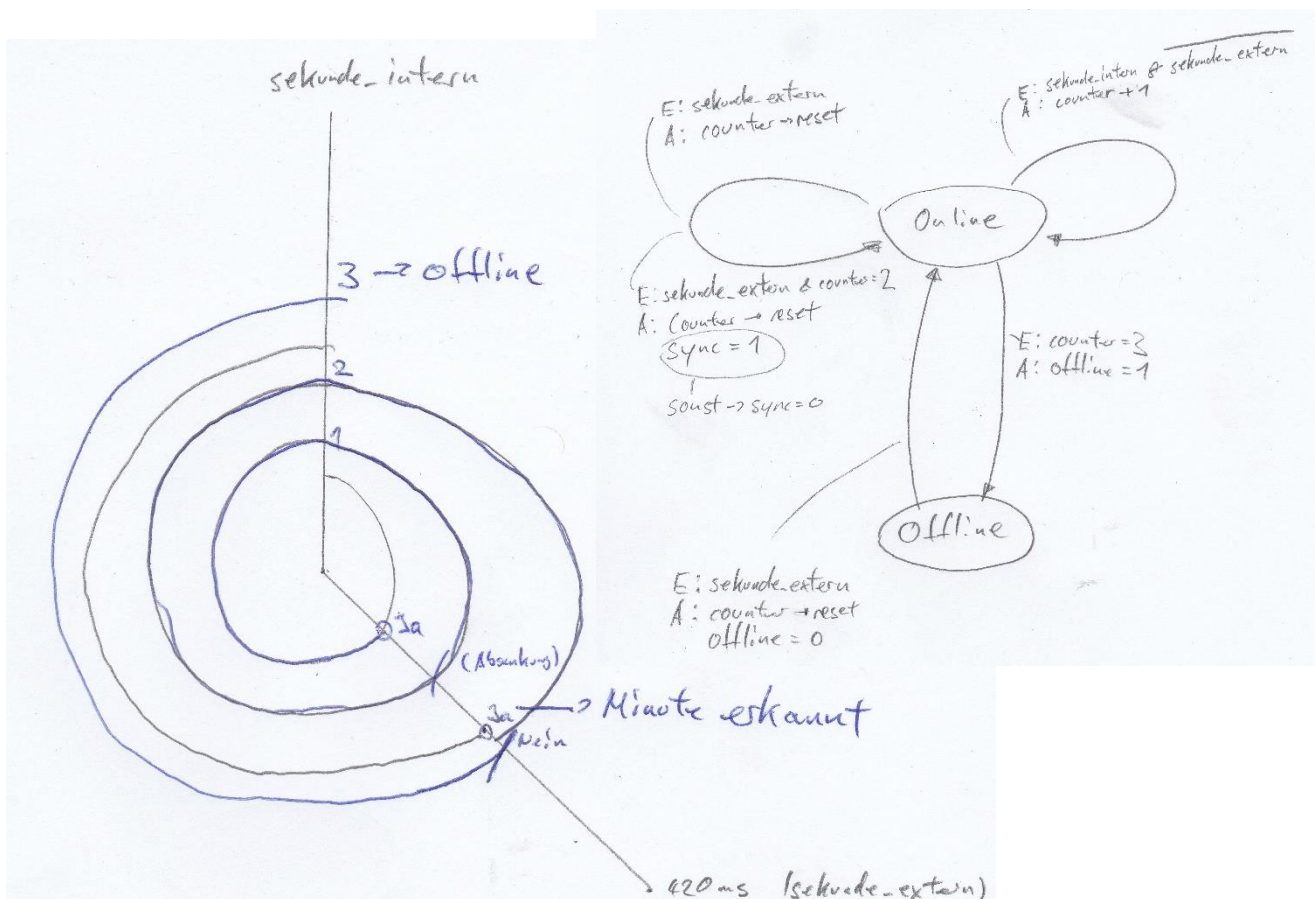 sekunde_intern
3 → offline
2
1
Ja
(Absenkung)
Ja → Minute erkannt
Nein
420ms (sekunde_extern)
E: sekunde_extern
A: counter → reset
E: sekunde_intern & sekunde_extern
A: counter + 1
Online
E: sekunde_extern & counter=2
A: Counter → reset
sync = 1
sonst → sync=0
E: counter=3
A: offline = 1
Offline
E: sekunde_extern
A: counter → reset
offline = 0